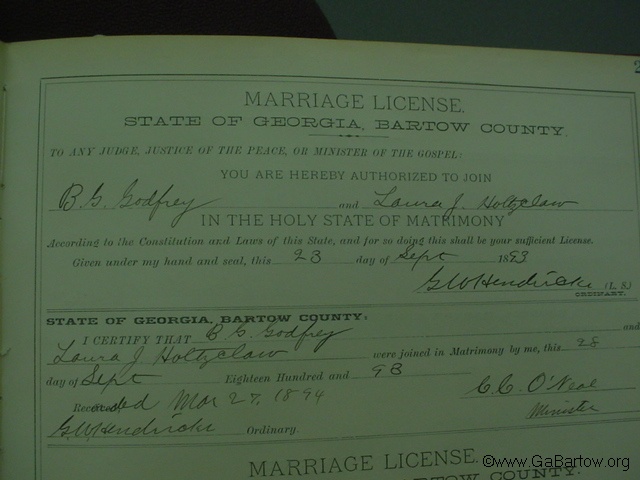 2
MARRIAGE LICENSE.
STATE OF GEORGIA, BARTOW COUNTY.
TO ANY JUDGE, JUSTICE OF THE PEACE, OR MINISTER OF THE GOSPEL:
YOU ARE HEREBY AUTHORIZED TO JOIN
B. G. Godfrey and Laura J. Holtzclaw
IN THE HOLY STATE OF MATRIMONY
According to the Constitution and Laws of this State, and for so doing this shall be your sufficient License.
Given under my hand and seal, this 23 day of Sept 1893
G W Hendricks (L. S.)
ORDINARY.
STATE OF GEORGIA, BARTOW COUNTY:
I CERTIFY THAT B G Godfrey and
Laura J Holtzclaw were joined in Matrimony by me, this 28
day of Sept Eighteen Hundred and 93
Recorded Mar 27, 1894 C. C. O'Neal
G W Hendricks Ordinary. Minister
MARRIAGE LICENSE.
BARTOW COUNTY.
©www.GaBartow.org